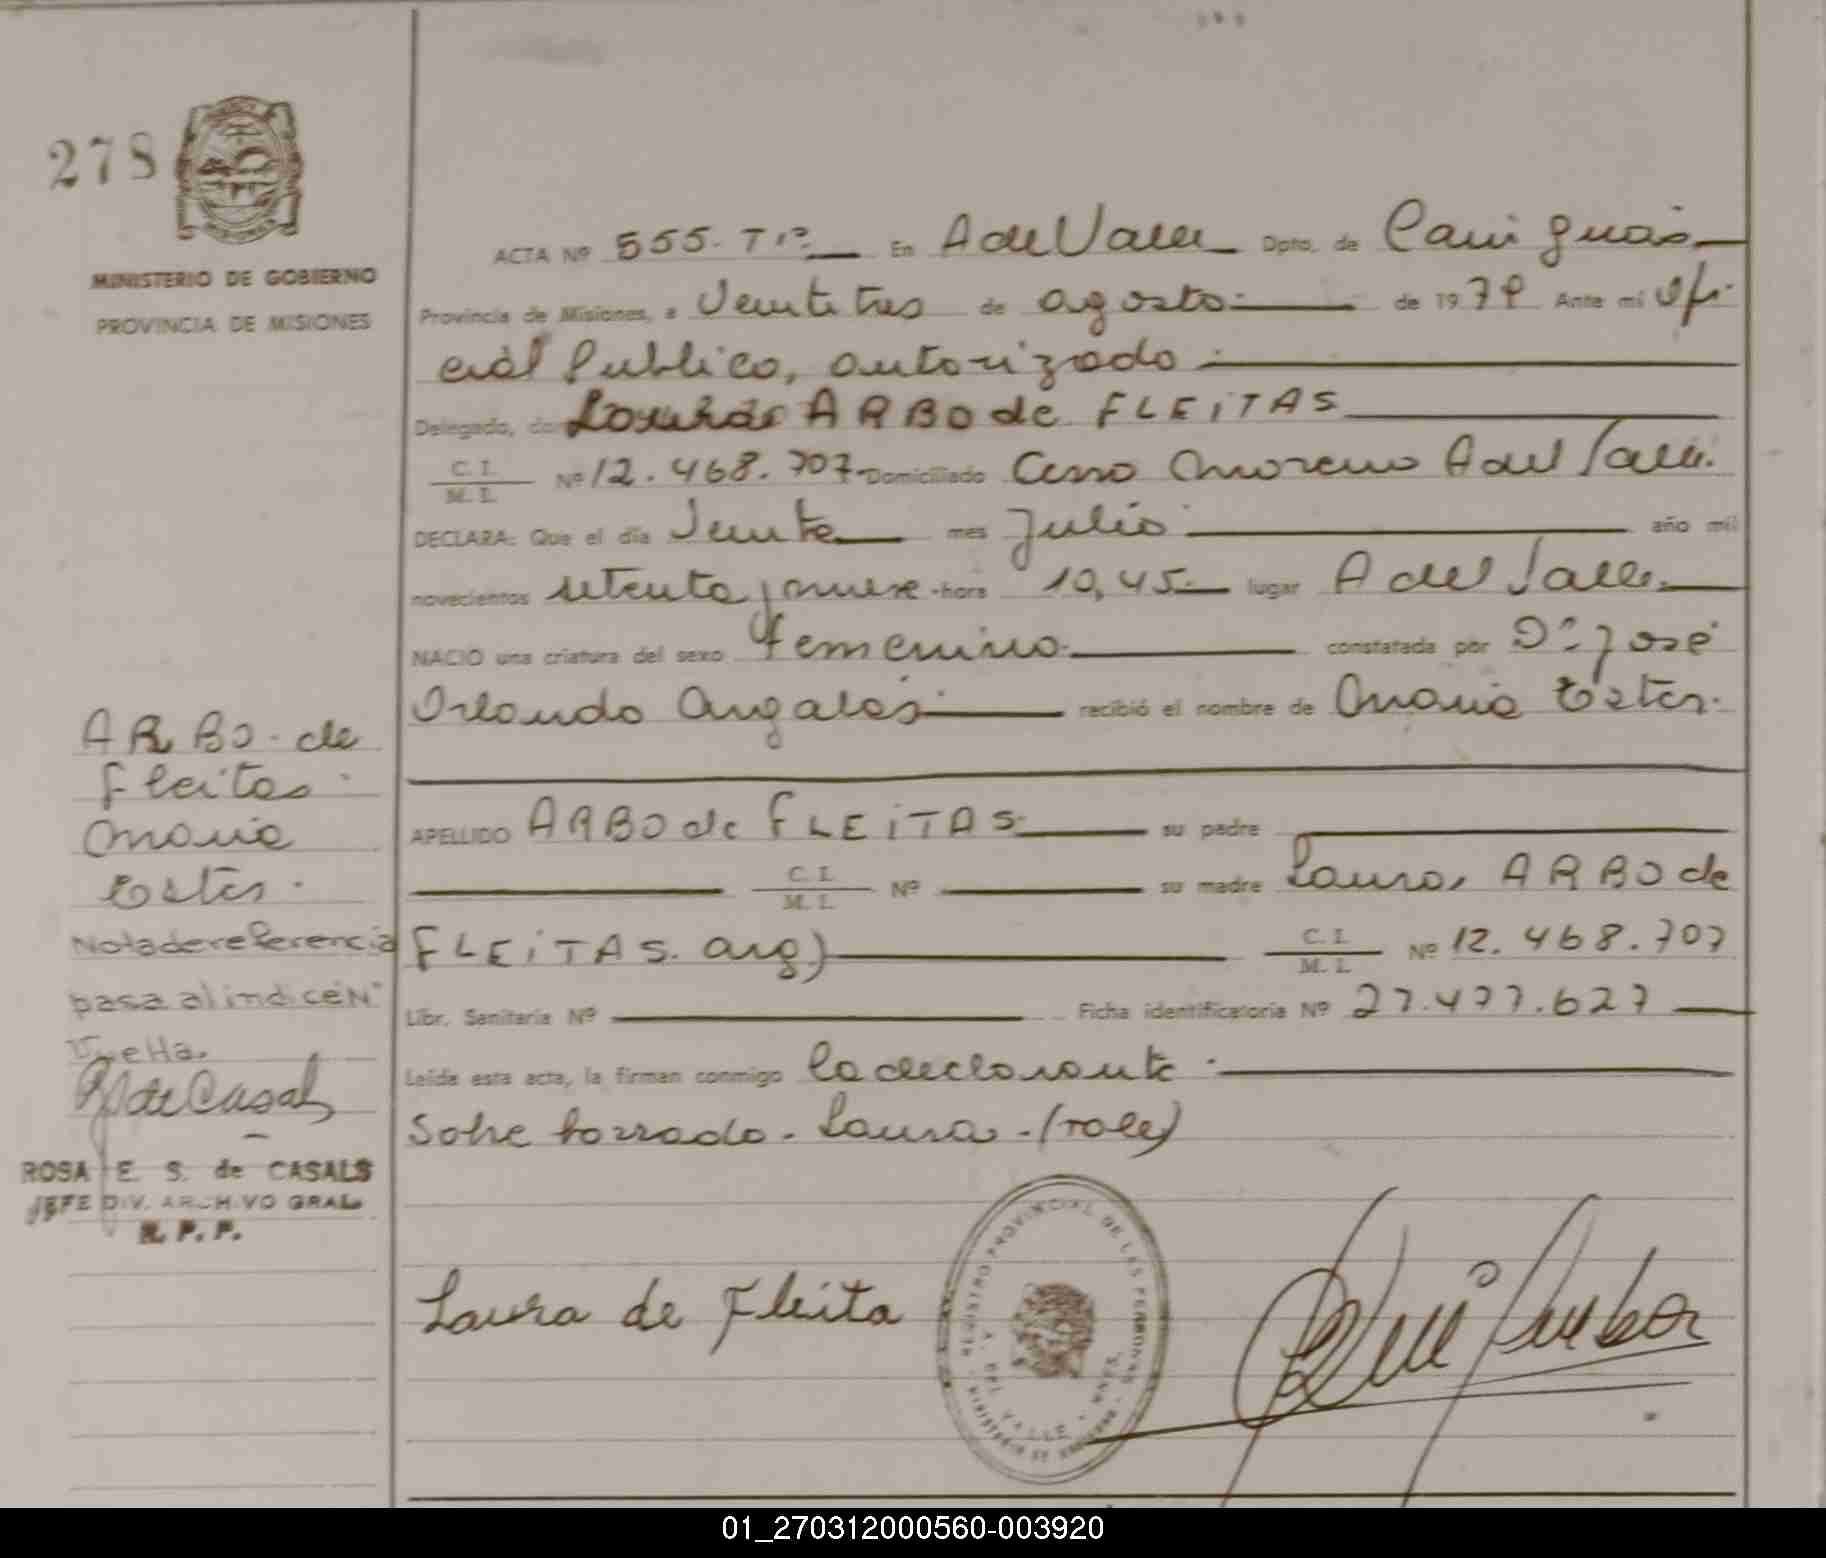 278
MINISTERIO DE GOBIERNO
PROVINCIA DE MISIONES
ACTA Nº 555. Tº En A del Valle Dpto. de Cainguás
Provincia de Misiones, a Veintitres de agosto de 1979 Ante mi Ofi
cial Publico, autorizado
Delegado, ARBO de FLEiTAS
C. I.
M. I. Nº 12.468.707 Domiciliado Cerro Moreno A del Valle.
DECLARA: Que el día Veinte mes Julio año mil
novecientos setenta y nueve hora 10,45 lugar A del Valle
NACIO una criatura del sexo femenino constatada por Dr. José
Orlando recibió el nombre de Maria Ester.
APELLIDO ARBO de FLEiTAS su padre
C. I.
M. I. Nº su madre Laura, ARBO de
FLEiTAS. arg) C. I.
M. I. Nº 12.468.707
Libr. Sanitaria Nº Ficha identificatoria Nº 27.477.627
Leída esta acta, la firman conmigo la declarante
Sobre borrado. Laura. (vale)
Laura de Fleita
ARBO de
Fleitas
Maria
Ester.
Nota de referencia
pasa al indice Nº
Vuelta.
R de Casals
ROSA E. S. de CASALS
JEFE DIV. ARCHIVO GRAL
R. P. P.
REGISTRO PROVINCIAL DE LAS PERSONAS
A. DEL VALLE - MNES.
MINISTERIO DE GOBIERNO
01_270312000560-003920